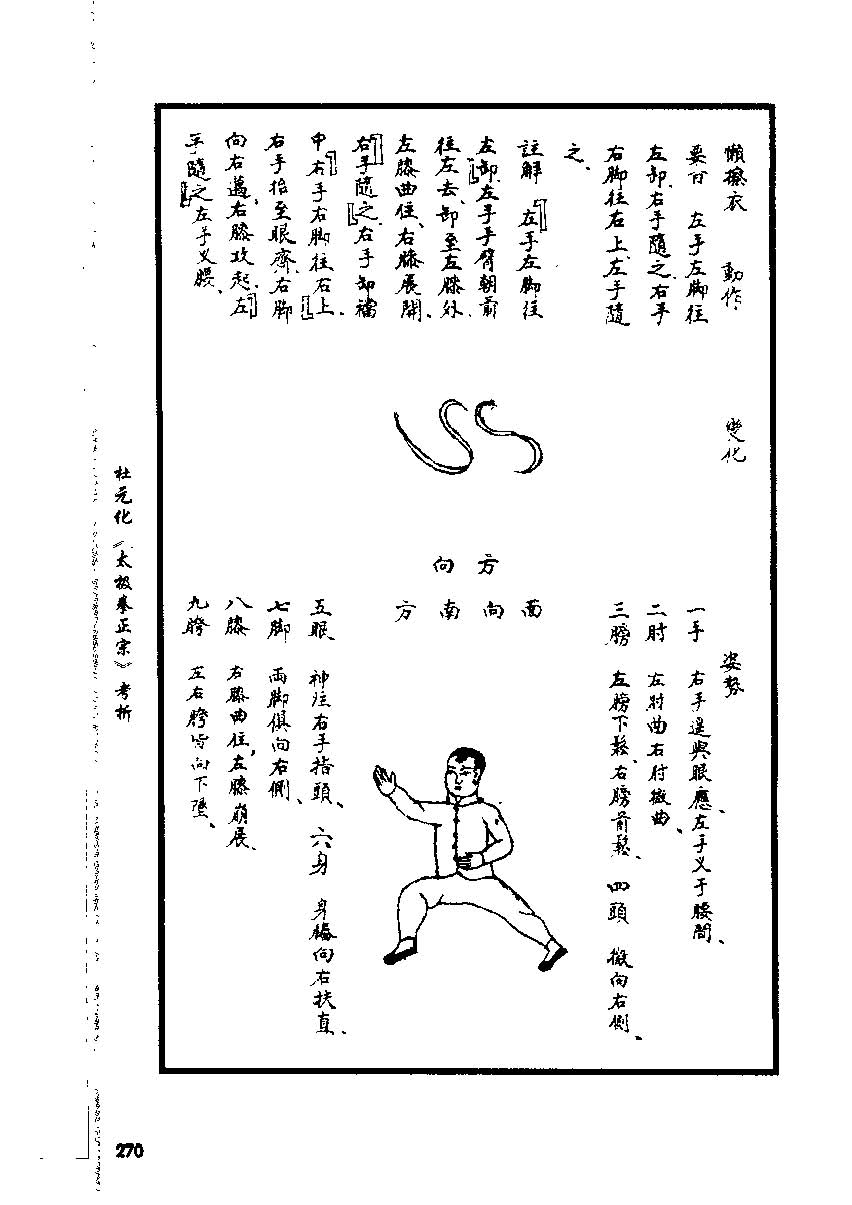 懶擦衣 動作
要言 左手左脚往
左卸、右手隨之、右手
右脚往右上、左手隨
之、
註解 『左手左脚往
左卸』、左手手臂朝前
往左去、卸至左膝外、
左膝曲住、右膝展開、
『右手隨之』、右手卸襠
中、『右手右脚往右上』、
右手指至眼齊、右脚
向右邁、右膝攻起、『左
手隨之』左手义腰、
變化
方向
面向南方
姿勢
一手 右手遥與眼應、左手义于腰間、
二肘 左肘曲右肘微曲、
三膀 左膀下鬆、右膀前鬆、四頭 微向右側、
五眼 神注右手指頭、六身 身樁向右扶直、
七脚 両脚俱向右側、
八膝 右膝曲住、左膝崩展、
九胯 左右胯皆向下墜、
杜元化《太极拳正宗》考析
270